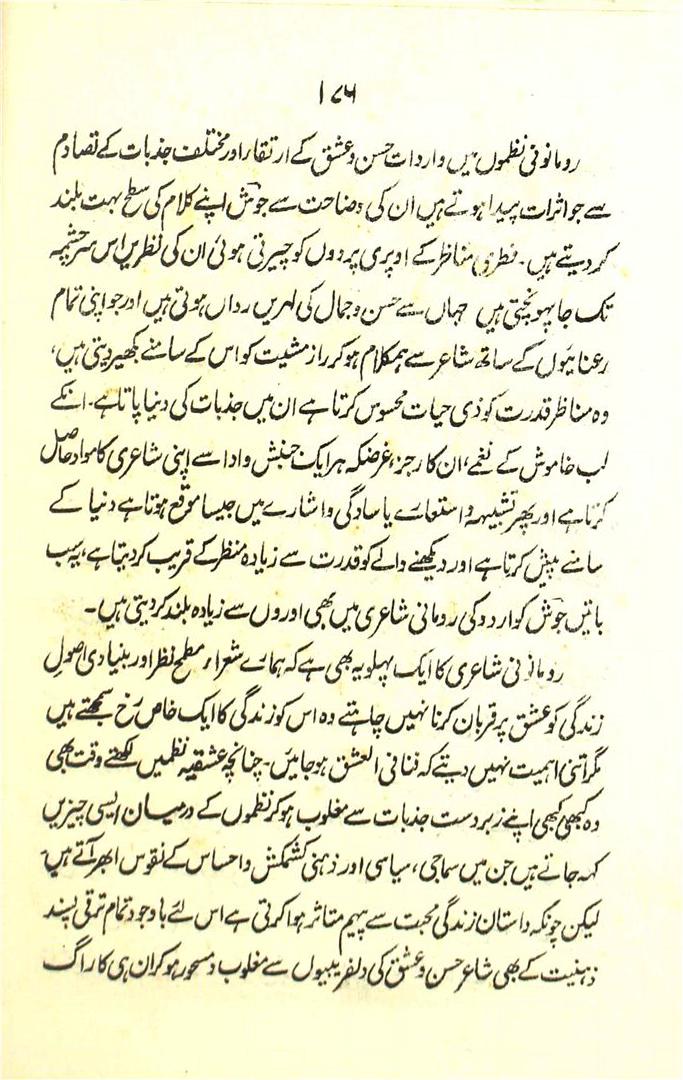 ۱۷۶
رومانوفی نظموں میں واردات حسن و عشق کے ارتقاء اور مختلف جذبات کے تصادم
سے جو اثرات پیدا ہوتے ہیں ان کی وضاحت سے جوش اپنے کلام کی سطح بہت بلند
کر دیتے ہیں۔ فطری مناظر کے اوپری پردوں کو چیرتی ہوئی ان کی نظریں اس سرچشمہ
تک جا پہونچتی ہیں جہاں سے حسن و جمال کی لہریں رواں ہوتی ہیں اور جو اپنی تمام
رعنائیوں کے ساتھ شاعر سے ہمکلام ہو کر راز مشیت کو اس کے سامنے بکھیر دیتی ہیں،
وہ مناظر قدرت کو ذی حیات محسوس کرتا ہے ان میں جذبات کی دنیا پاتا ہے۔ انکے
لب خاموش کے نغمے، ان کا رجز، غرضکہ ہر ایک جنبش و ادا سے اپنی شاعری کا مواد حاصل
کرتا ہے اور پھر تشبیہہ و استعارے یا سادگی و اشارے میں جیسا موقع ہوتا ہے دنیا کے
سامنے پیش کرتا ہے اور دیکھنے والے کو قدرت سے زیادہ منظر کے قریب کر دیتا ہے، یہ سب
باتیں جوش کو اردو کی رومانی شاعری میں بھی اوروں سے زیادہ بلند کر دیتی ہیں۔
رومانونی شاعری کا ایک پہلو یہ بھی ہے کہ ہمارے شعراء مطمح نظر اور بنیادی اصول
زندگی کو عشق پر قربان کرنا نہیں چاہتے وہ اس کو زندگی کا ایک خاص رخ سمجھتے ہیں
مگر اتنی اہمیت نہیں دیتے کہ فنافی العشق ہو جائیں۔ چنانچہ عشقیہ نظمیں لکھتے وقت بھی
وہ کبھی کبھی اپنے زبردست جذبات سے مغلوب ہو کر نظموں کے درمیان ایسی چیزیں
کہہ جاتے ہیں جن میں سماجی، سیاسی اور ذہنی کشمکش و احساس کے نقوس ابھر آتے ہیں۔
لیکن چونکہ داستان زندگی محبت سے پیہم متاثر ہوا کرتی ہے اس لئے باوجود تمام ترقی پسند
ذہنیت کے بھی شاعر حسن و عشق کی دلفریبیوں سے مغلوب و مسحور ہو کر ان ہی کا راگ